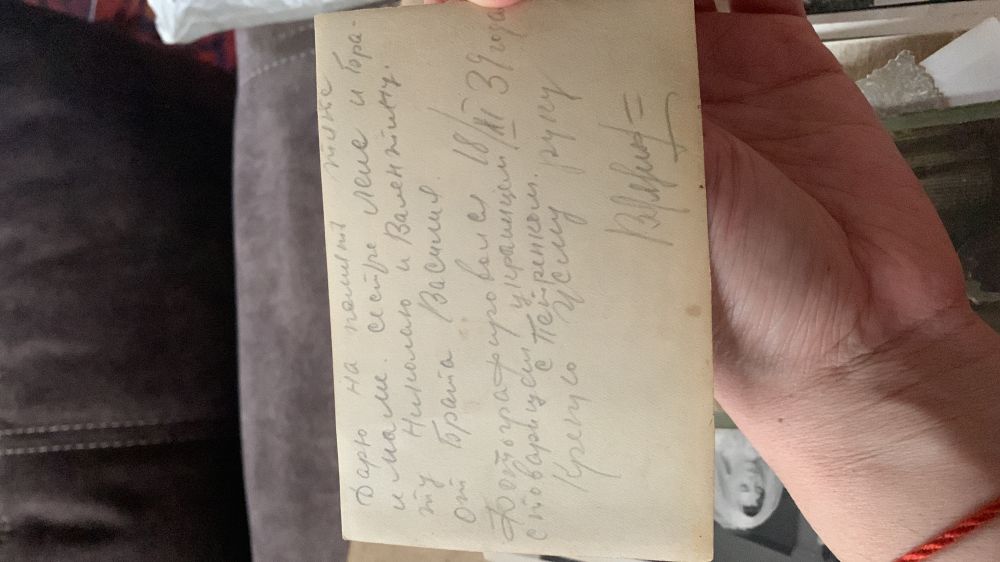 Дарю на память тоже
и маме. сестре Леле и Бра-
ту Николаю и Валентину.
от Брата Василия.
Фотографировался 18/XI 39 года
с товарищем украинцем
с Петренком.
Крепко жму руку